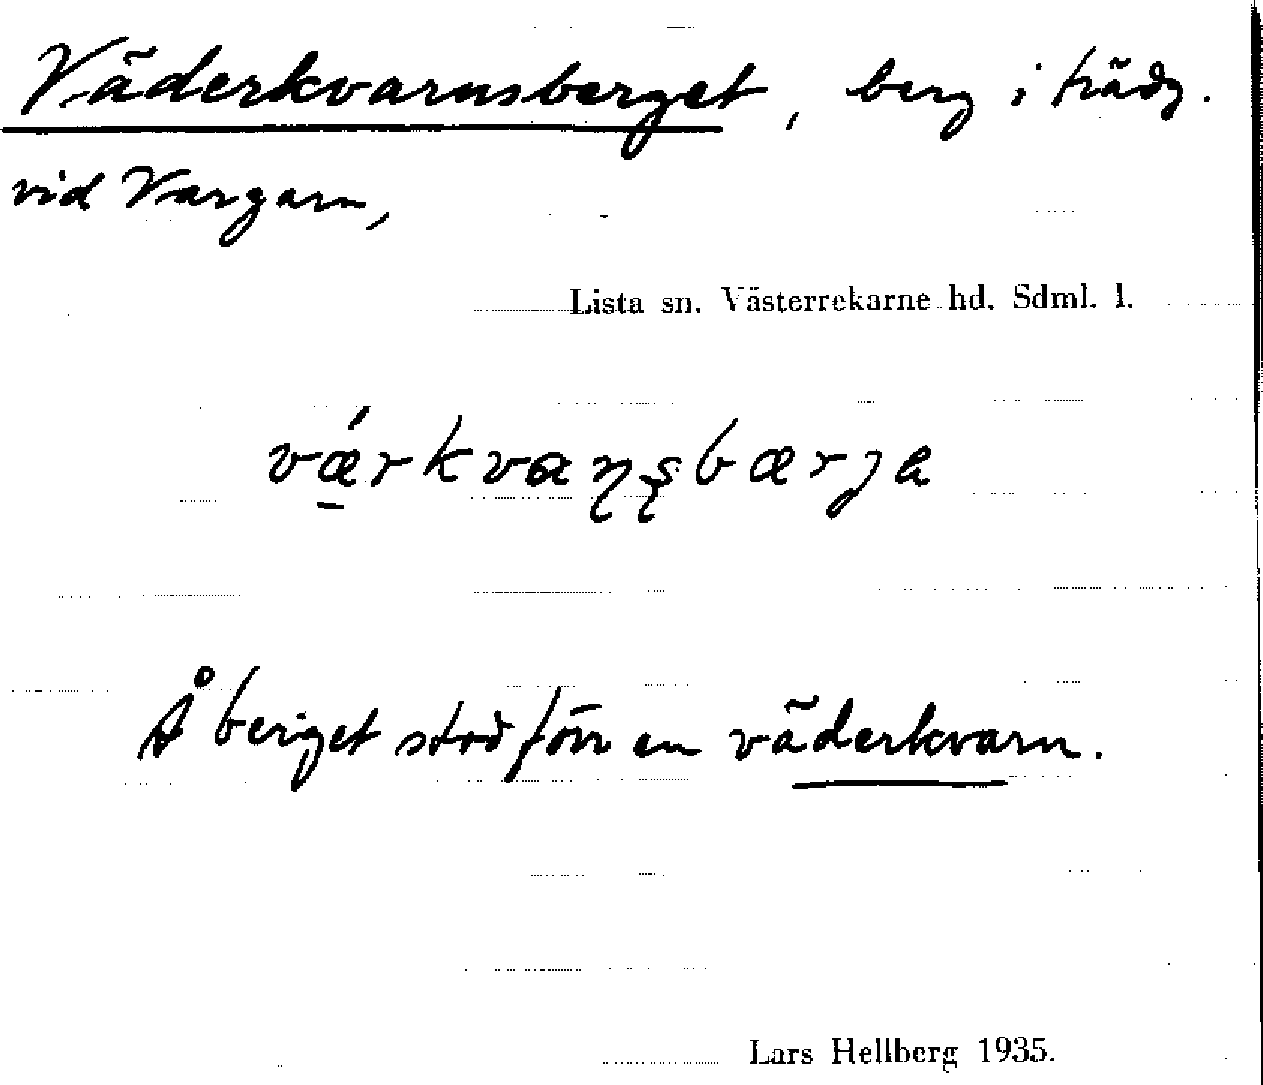 Väderkvarnsberget, berg i trädg.
vid Vargarn,
Lista sn. Västerrekarne hd. Sdml. l.
vǽ̱rkvaɳʂbærja
Å berget stod förr en väderkvarn.
Lars Hellberg 1935.